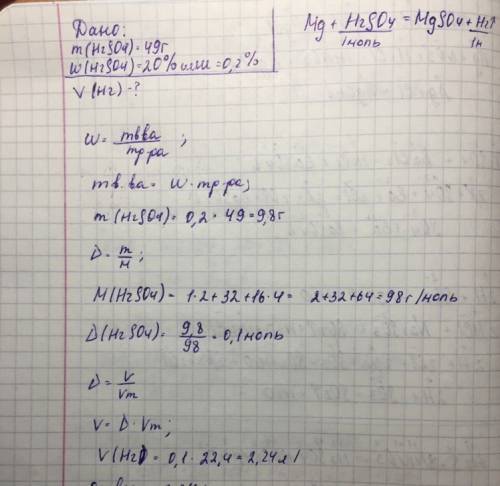 Дано:
m(H2SO4)=49г
w(H2SO4)=20% или =0,2%
V(H2)-?
Mg+H2SO4=MgSO4+H2↑
1моль 1м
w= mв.ва / mр-ра ;
mв.ва= w·mр.ра;
m(H2SO4)= 0,2·49=9,8г
D= m/M ;
M(H2SO4)= 1·2+32+16·4= 2+32+64=98г/моль
D(H2SO4)= 9,8/98 =0,1моль
D= V/Vm
V= D·Vm;
V(H2)= 0,1·22,4=2,24л